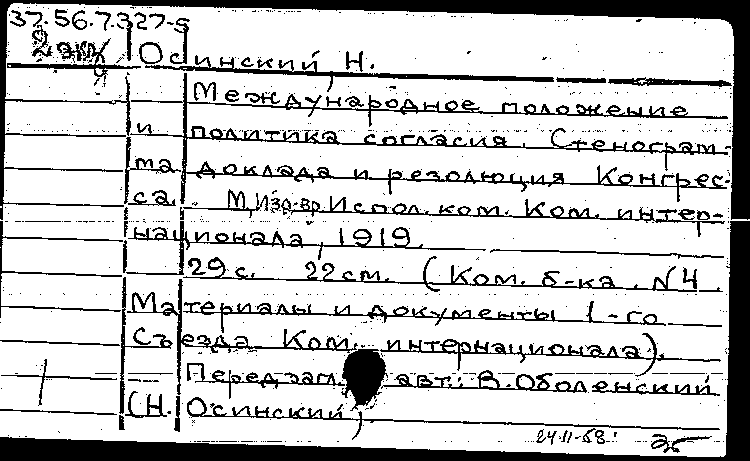 37.56.7.327-5
2 экз
Осинский, Н.
Международное положение
и политика согласия. Стенограм-
ма доклада и резолюция Конгрес-
са. М, Изд-во Испол. ком. Ком. интер-
национала, 1919.
29 с. 22 см. (Ком. б-ка. N 4
Материалы и документы 1-го
Съезда Ком. интернационала).
Перед загл. авт.: В. Оболенский
(Н. Осинский).
24.11-58